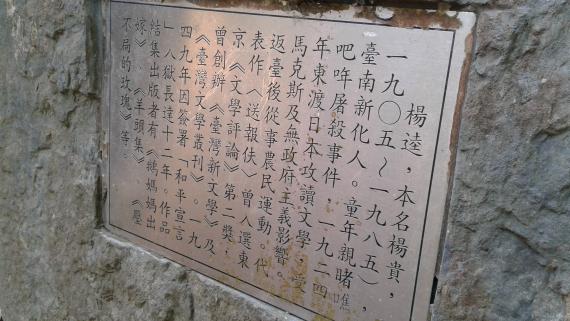 楊逵，本名楊貴，
一九○五～一九八五），
臺南新化人。童年親睹噍
吧哖屠殺事件，一九二四
年東渡日本攻讀文學，受
馬克斯及無政府主義影響。
返臺後從事農民運動。代
表作〈送報伕〉曾入選東
京《文學評論》第二獎，
曾創辦《臺灣新文學》及
《臺灣文學叢刊》。一九
四九年因簽署「和平宣言
」入獄長達十二年。作品
結集出版者有《鵝媽媽出
嫁》《羊頭集》、《壓
不扁的玫瑰》等。